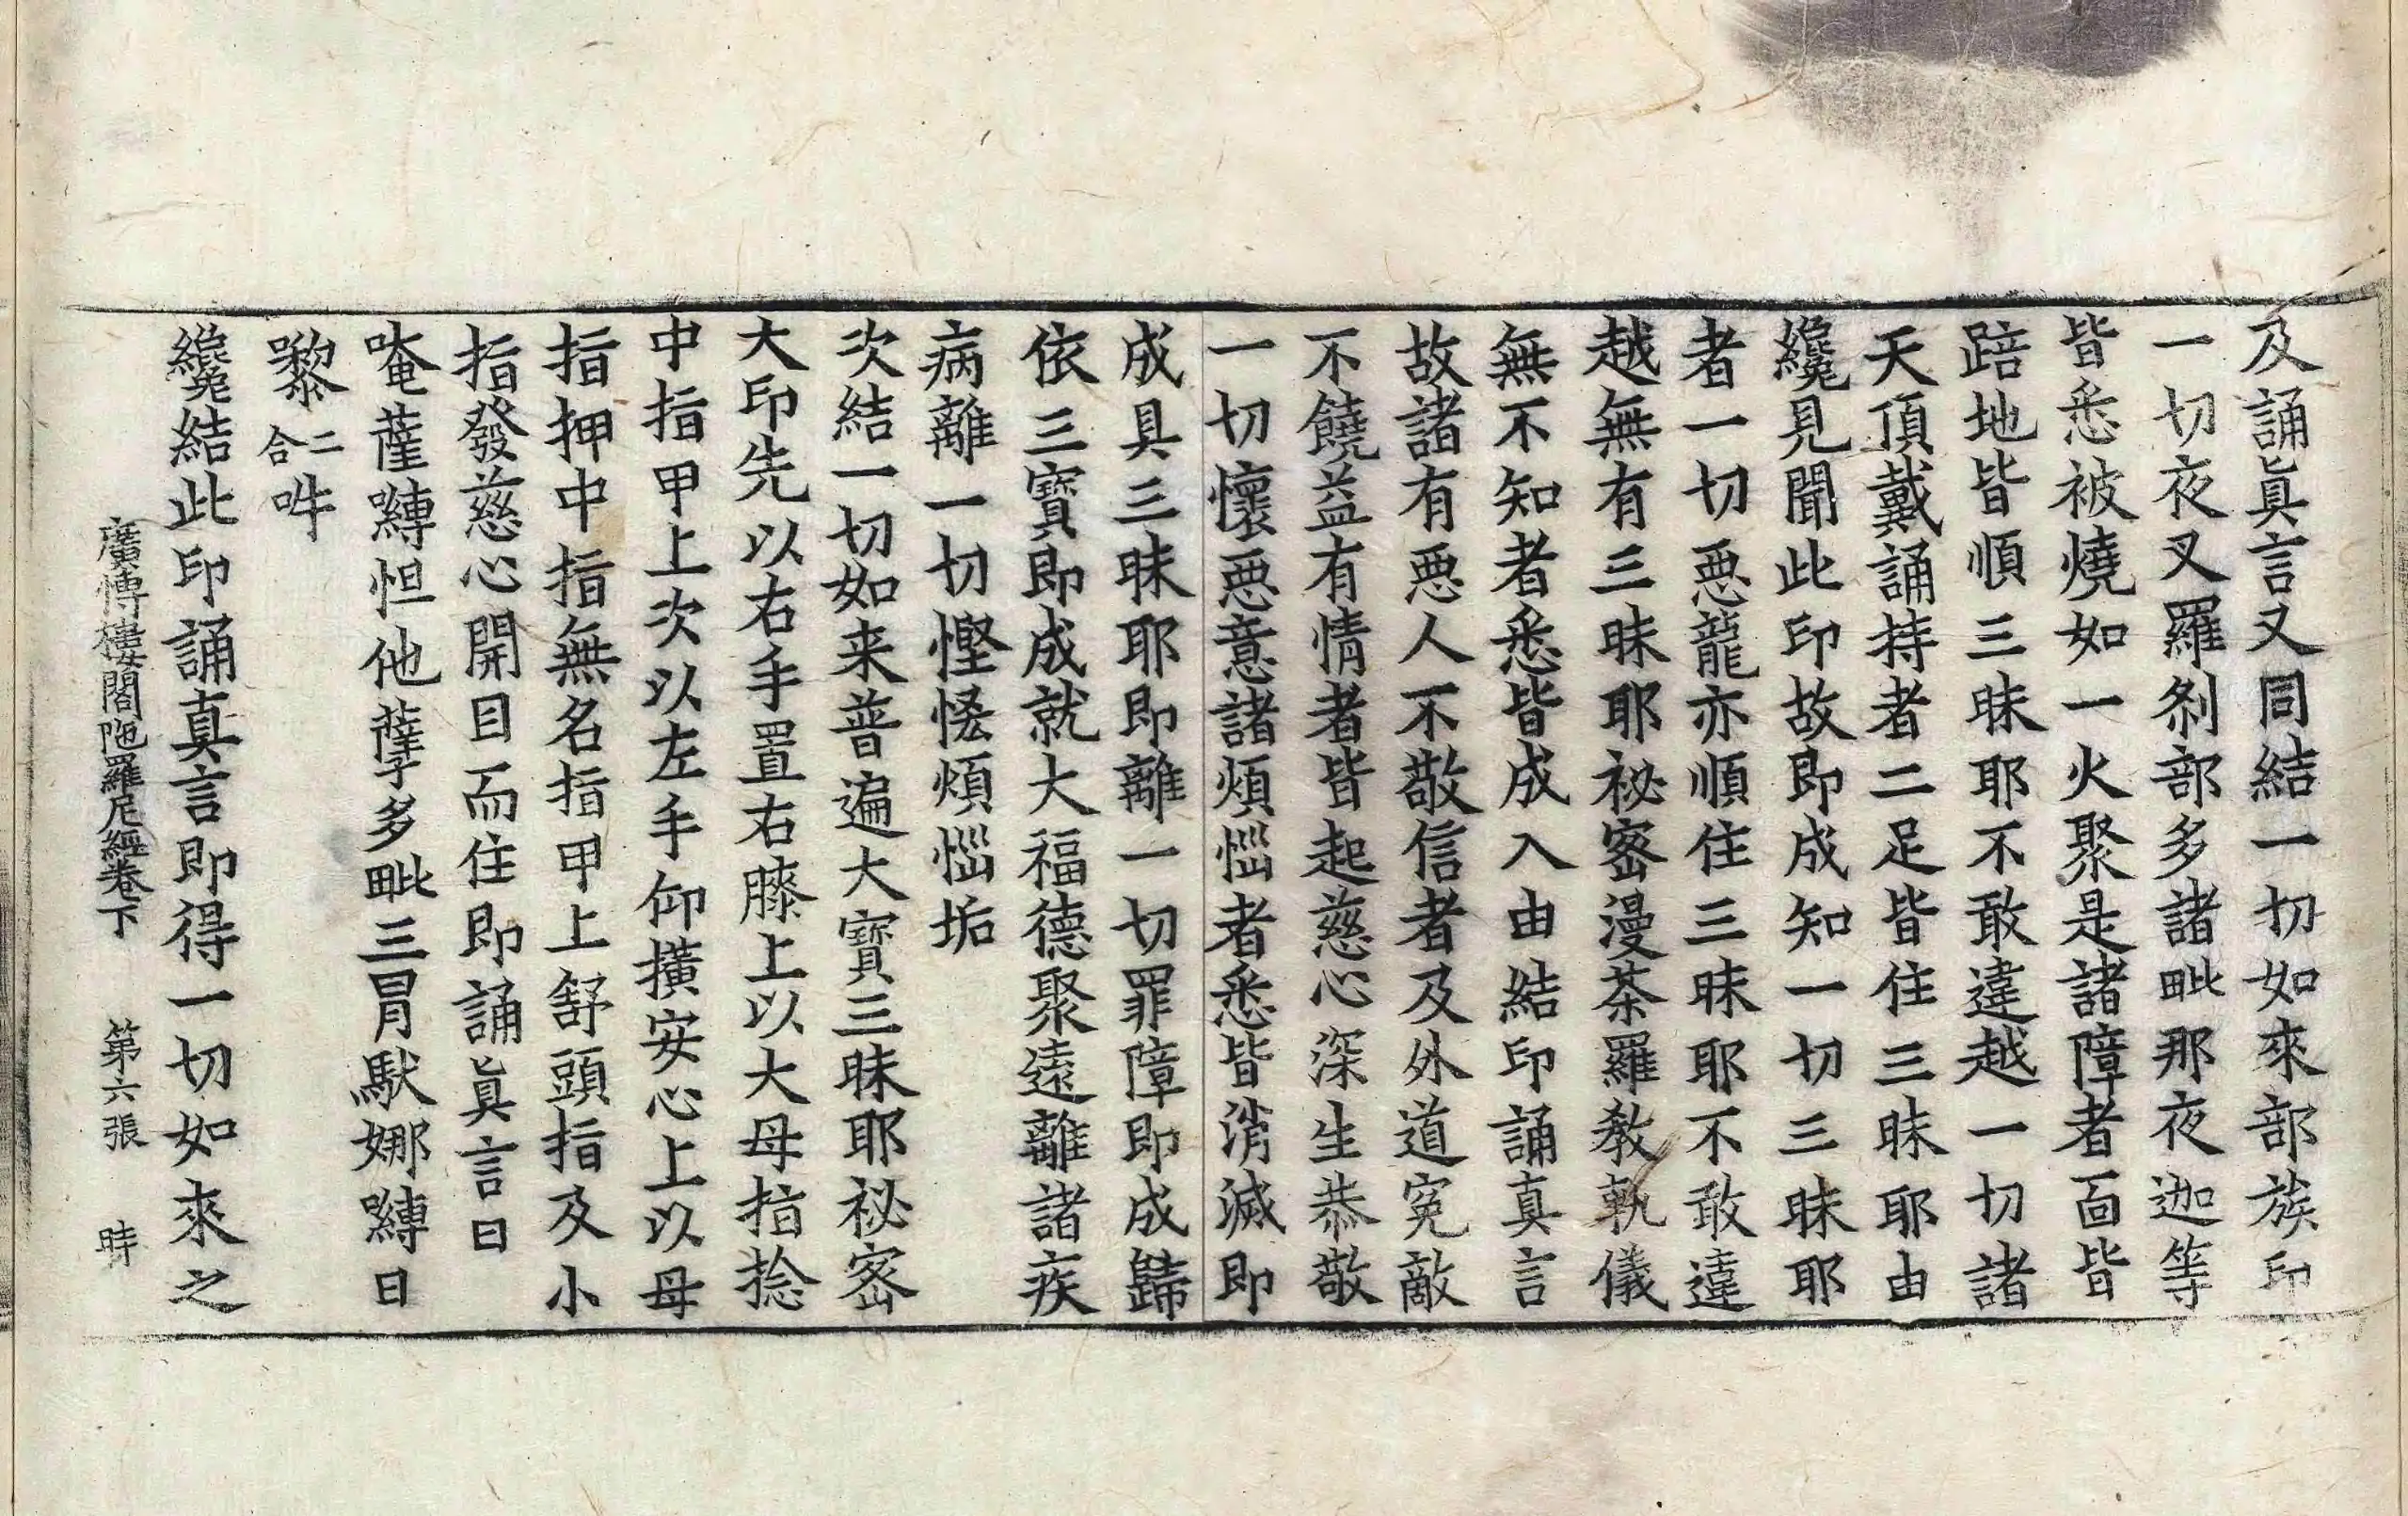 及誦眞言又同結一切如來部族印
一切夜叉羅刹部多諸毗那夜迦等
皆悉被燒如一火聚是諸障者面皆
踣地皆順三昧耶不敢違越一切諸
天頂戴誦持者二足皆住三昧耶由
纔見聞此印故即成知一切三昧耶
者一切惡龍亦順住三昧耶不敢違
越無有三昧耶祕密漫荼羅教軌儀
無不知者悉皆成入由結印誦真言
故諸有惡人不敬信者及外道冤敵
不饒益有情者皆起慈心深生恭敬
一切懷惡意諸煩惱者悉皆消滅即
成具三昧耶即離一切罪障即成歸
依三寶即成就大福德聚遠離諸疾
病離一切慳悋煩惱垢
次結一切如来普遍大寶三昧耶祕密
大印先以右手置右膝上以大母指捻
中指甲上次以左手仰擴安心上以母
指押中指無名指甲上舒頭指及小
指發慈心開目而住即誦眞言曰
唵薩嚩怛他蘖多毗三冐馱娜嚩日
㘑二合吽
纔結此印誦真言即得一切如來之
廣博樓閣陁羅尼經卷下 第六張 時